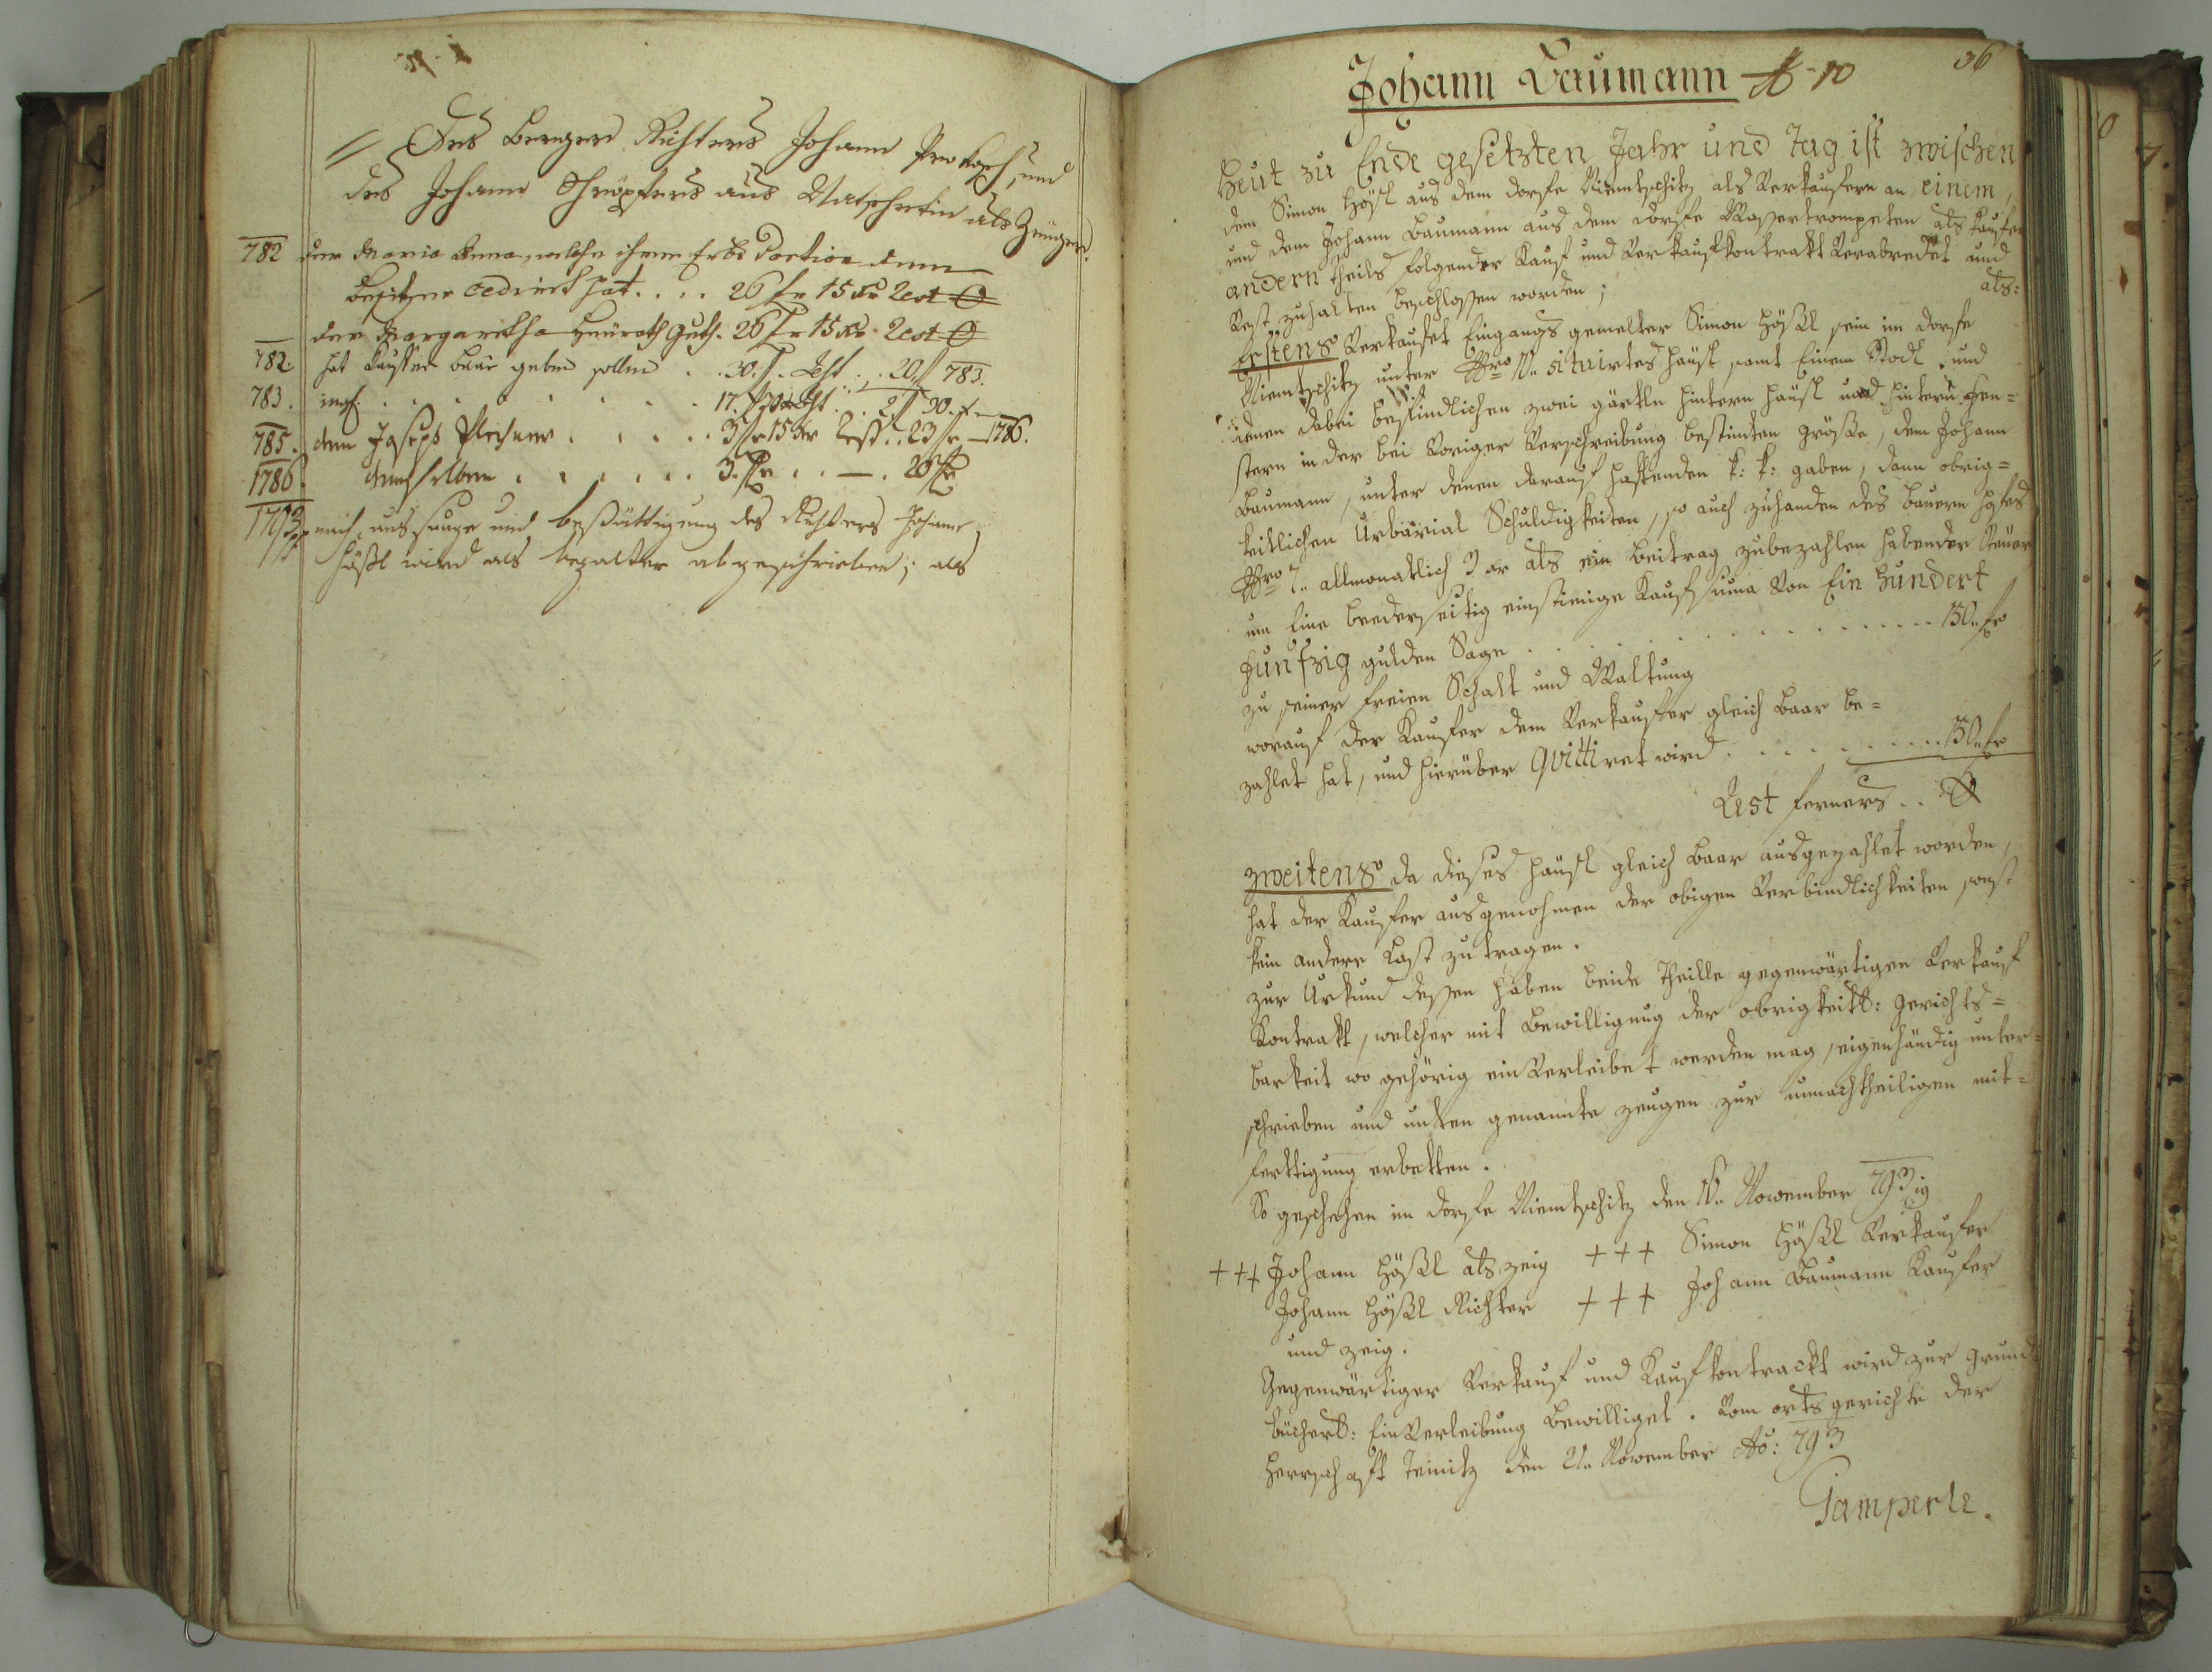 Des Berger Richters Johann Prokosch, und
des Johann Schröpfers aus Natschetin als Zeugen.
782 der Maria Anna, welche ihren Erbs Portion dem
Besitzer cedirt hat .... 26 f 15 xr Rest 0
der Margaretha Heurath Guth. 26 f 15 xr. Rest 0
782. hat Kauffer baar geben sollen .. 30. f. Rest .. 20. f 783.
783. 17. f 30 xr Rest .. 2. f 30.
785. dem Joseph Pleiner ..... 3 f 15 xr Rest .. 23 f — 1786.
1786. demselben ...... 3. f .. — . 20 f
1793 nach aussage und bestättigung des Richters Johann
Hößl wird als bezalter abgeschrieben; als
36
Johann Baumann N 10
Heut zu Ende gesetzten Jahr und Tag ist zwischen
dem Simon Hößl aus dem dorfe Niemtschitz als Verkaufern an einem,
und dem Johann Baumann aus dem dorfe Wassertrompeten als Kaufer
andern theils folgender Kauf und Verkaufkontrakt Verabredet und
Vest zuhalten beschlossen worden; als:
Erstens Verkaufet Eingangs gemelter Simon Hößl sein im dorfe
Niemtschitz unter Nro 10. situirtes Häusl samt Einem Stadl, und
denen dabei befindlichen zwei gärtln hintern Häusl und hintern Fen=
stern in der bei Voriger Verschreibung bestimten größe, dem Johann
Baumann, unter denen darauf haftenden k: k: gaben, dann obrig=
keitlichen Urbarial Schuldigkeiten, so auch zuhanden des bauern Hofes
Nro 7. allmonatlich 3 xr als ein Beitrag zubezahlen habender Steuer
um Eine beederseitig einstimige Kaufsuma Von Ein Hundert
Fünfzig gulden Sage ........... 150. f
zu seiner freien Schalt und Waltung
worauf der Kaufer dem Verkaufer gleich baar be=
zahlet hat, und hierüber Quittiret wird ......... 150. f
Rest ferners .. 0
Zweitens da dieses Häusl gleich baar ausgezahlet worden,
hat der Kaufer ausgenohmen der obigen Verbindlichkeiten sonst
kein andere Last zu tragen.
zur Urkund dessen haben beide Theille gegenwärtigen Verkauf
Kontrakt, welcher mit Bewilligung der obrigkeitl: Gerichts=
barkeit wo gehörig einVerleibet werden mag, eigenhändig unter=
schrieben und unten genannte zeugen zur unnachtheiligen mit=
fertigung erbetten.
So geschehen im dorfe Niemtschitz den 10. November 793ig
+++ Johann Hößl als zeig +++ Simon Hößl Verkaufer
Johann Hößl Richter +++ Johann Baumann Kaufer
und zeig.
Gegenwärtiger Verkauf und Kaufkontrackt wird zur Grund
bücherl: EinVerleibung bewilliget. Vom ortsgerichte der
Herrschaft Teinitz den 21. November Ao: 793
Gamperle.